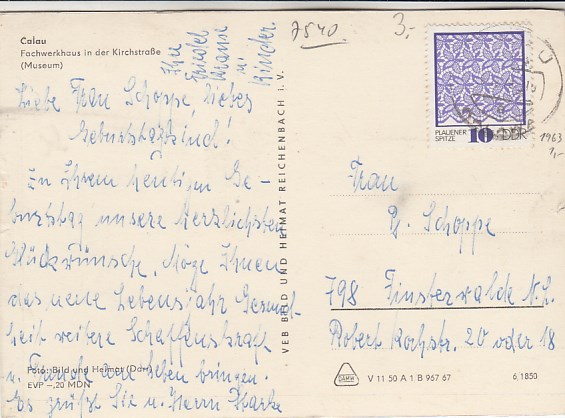 Calau
Fachwerkhaus in der Kirchstraße
(Museum)
Liebe Frau Schoppe, liebes
Geburtstagskind!
Zu Ihrem heutigen Ge-
burtstag unsere herzlichsten
Glückwünsche. Möge Ihnen
das neue Lebensjahr Gesund-
heit weitere Schaffenskraft
u. Freude am Leben bringen.
Es grüßt Sie u. Herrn
Ihre
Friedel
Krause
u.
Kinder.
Foto: Bild und Heimat (Darr)
EVP –,20 MDN
VEB BILD UND HEIMAT REICHENBACH I. V.
7540
3,-
PLAUENER
SPITZE
10
DDR
1963
1,-
Frau
Schoppe
798 Finsterwalde N.L.
Robert Kochstr. 20 oder 18
V 11 50 A 1 B 967 67
6/1850